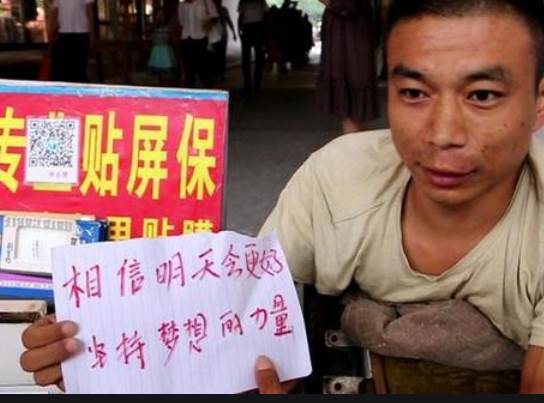 专 贴屏保
贴膜
相信明天会更好
坚持梦想的力量